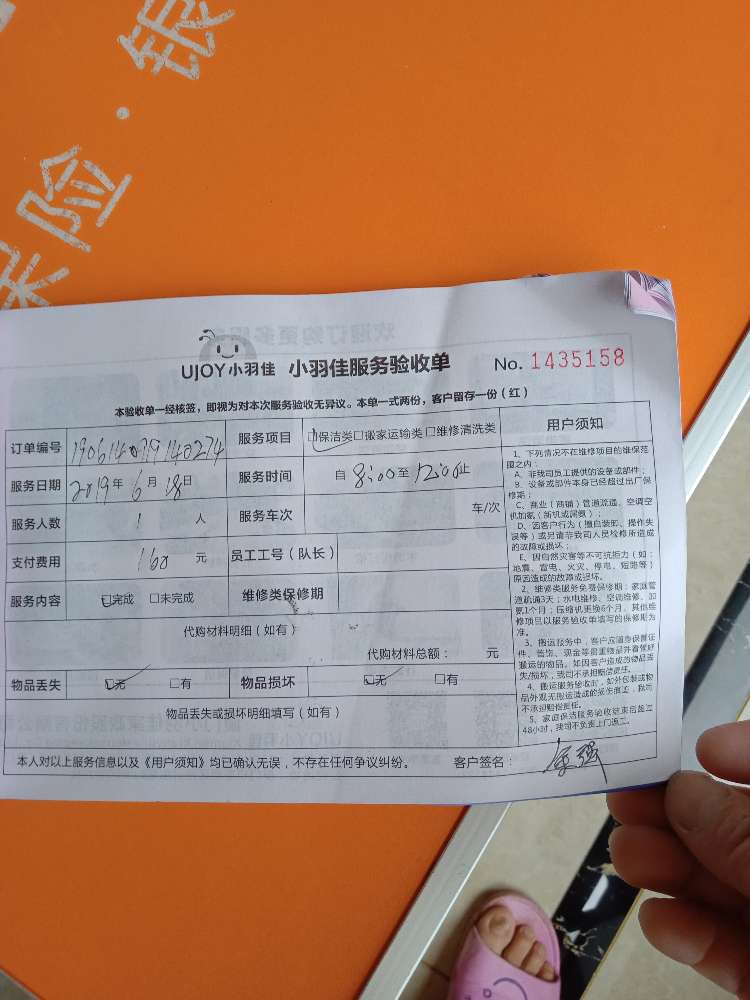 保险·银
UJOY小羽佳 小羽佳服务验收单 No. 1435158
本验收单一经核签，即视为对本次服务验收无异议。本单一式两份，客户留存一份（红）
订单编号 190614079140274 服务项目 ☑保洁类□搬家运输类□维修清洗类
服务日期 2019年6月18日 服务时间 自8:00至12:00止
服务人数 1 人 服务车次 车/次
支付费用 160 元 员工工号（队长）
服务内容 ☑完成 □未完成 维修类保修期
代购材料明细（如有）
代购材料总额： 元
物品丢失 ☑无 □有 物品损坏 ☑无 □有
物品丢失或损坏明细填写（如有）
本人对以上服务信息以及《用户须知》均已确认无误，不存在任何争议纠纷。 客户签名：
用户须知
1、下列情况不在维修项目的维保范
围之内：
A、非我司员工提供的设备或部件；
B、设备或部件本身已经超过出厂保
修期；
C、商业（商铺）管道疏通、空调空
机加氨（新机或漏氨）；
D、因客户行为（擅自装卸、操作失
误等）或另请非我司人员检修所造成
的故障或损坏；
E、因自然灾害等不可抗拒力（如：
地震、雷电、火灾、停电、短路等）
原因造成的故障或损坏。
2、维修类服务免费保修期：家庭管
道疏通3天；水电维修、空调维修、加
氨1个月；压缩机更换6个月，其他维
修项目以服务验收单填写的保修期为
准。
3、搬运服务中，客户应随身保管证
件、首饰、现金等贵重物品并看管好
搬运的物品。如因客户造成的物品丢
失/损坏，我司不承担赔偿责任。
4、搬运服务验收时，如外包装或物
品外观无搬运造成的损伤痕迹，我司
不承担赔偿责任。
5、家庭保洁服务验收结束后超过
48小时，我司不负责上门返工。